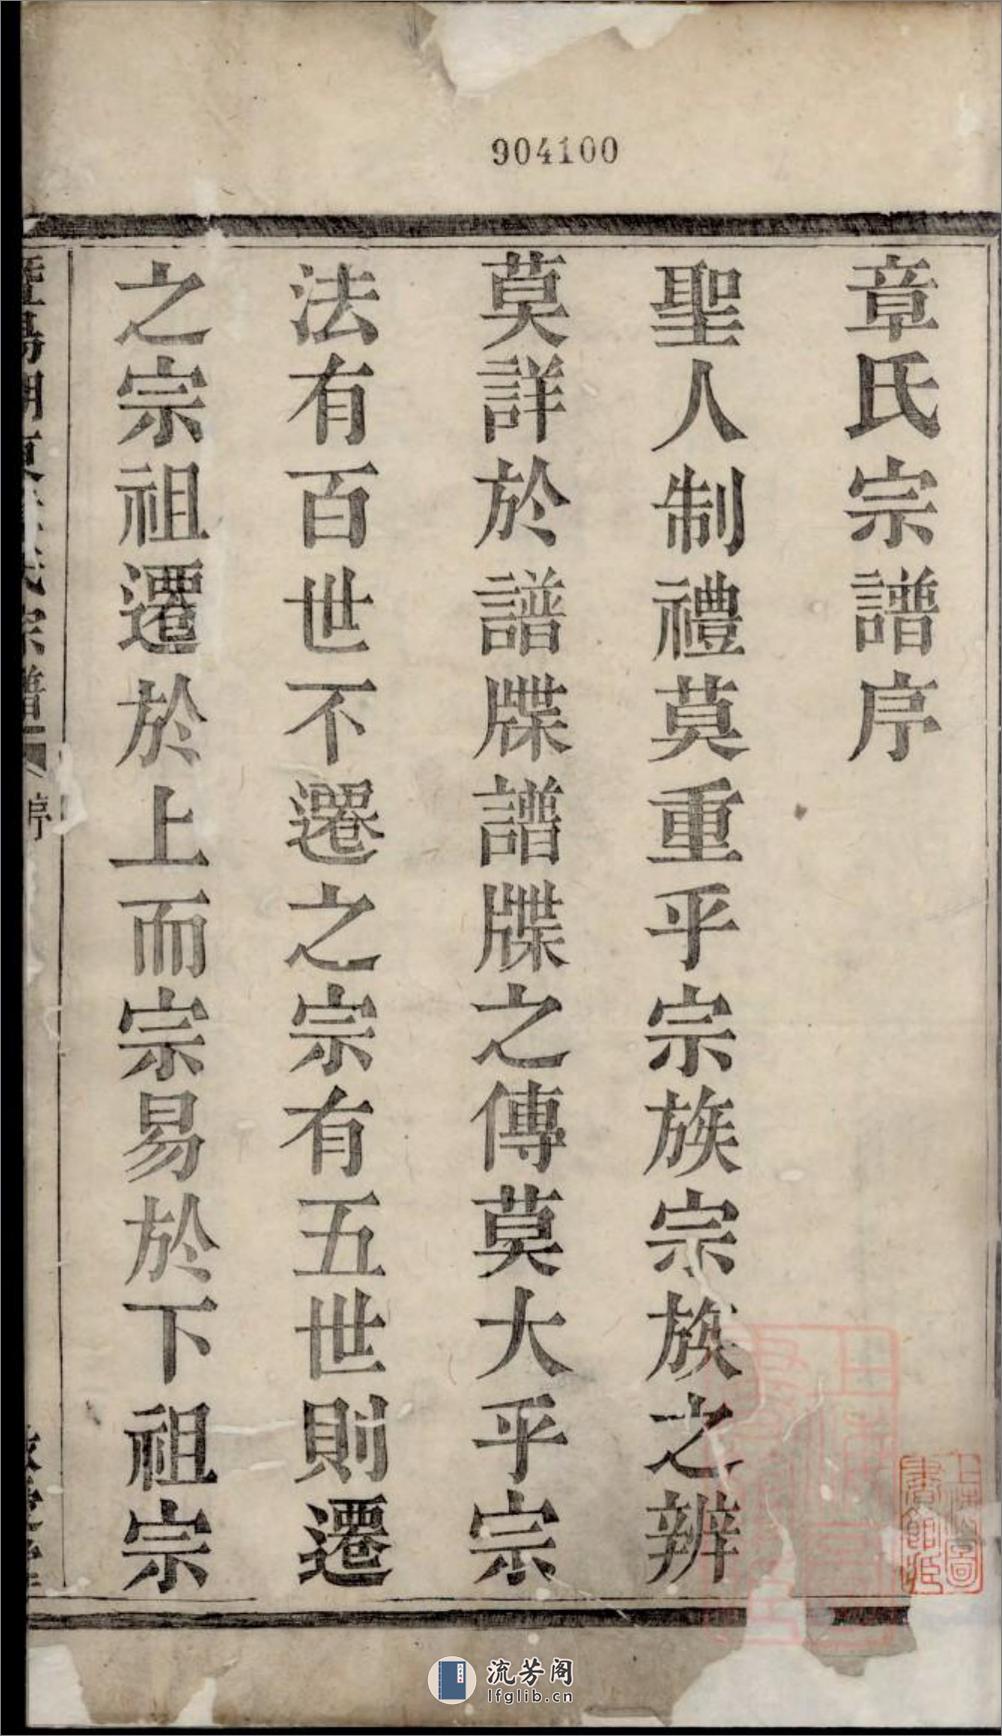 904100
章氏宗譜序
聖人制禮莫重乎宗族宗族之辨
莫詳於譜牒譜牒之傳莫大乎宗
法有百世不遷之宗有五世則遷
之宗祖遷於上而宗易於下祖宗
暨陽湖東章氏宗譜
序
流芳阁
lfglib.cn